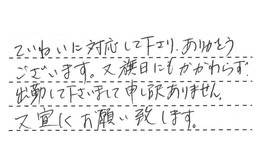 ていねいに対応して下さり、ありがとう
ございます。又祭日にもかかわらず
出勤して下さいまして申し訳ありません。
又宜しくお願い致します。